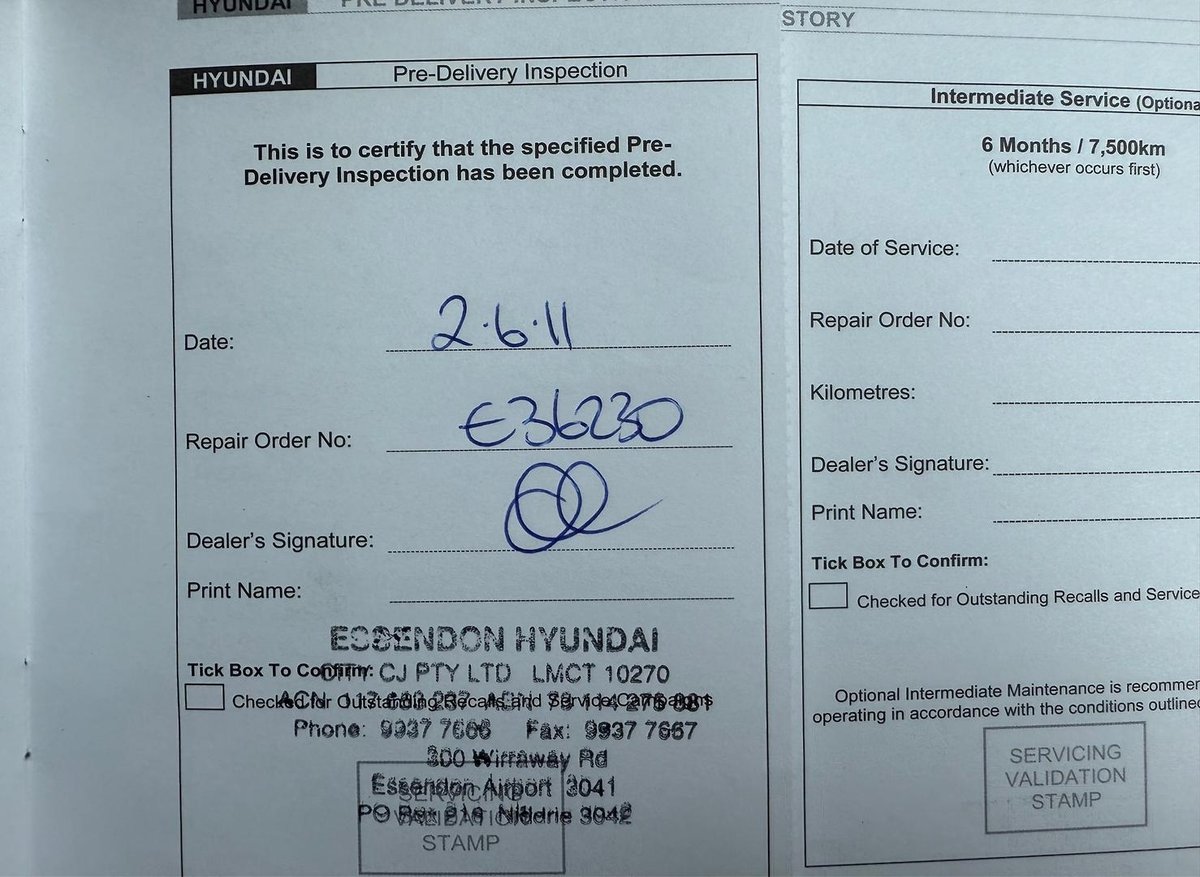 HYUNDAI
PRE DELIVERY
HYUNDAI Pre-Delivery Inspection
This is to certify that the specified Pre-
Delivery Inspection has been completed.
Date: 2.6.11
Repair Order No: E36230
Dealer's Signature:
Print Name:
ESSENDON HYUNDAI
Tick Box To Confirm: CJ PTY LTD LMCT 10270
Checked for Outstanding Recalls and Service
Phone: 9937 7666 Fax: 9937 7667
300 Wirraway Rd
Essendon Airport 3041
PO Box Niddrie 3042
SERVICING
VALIDATION
STAMP
STORY
Intermediate Service (Optiona
6 Months / 7,500km
(whichever occurs first)
Date of Service:
Repair Order No:
Kilometres:
Dealer's Signature:
Print Name:
Tick Box To Confirm:
Checked for Outstanding Recalls and Service
Optional Intermediate Maintenance is recommen
operating in accordance with the conditions outlined
SERVICING
VALIDATION
STAMP